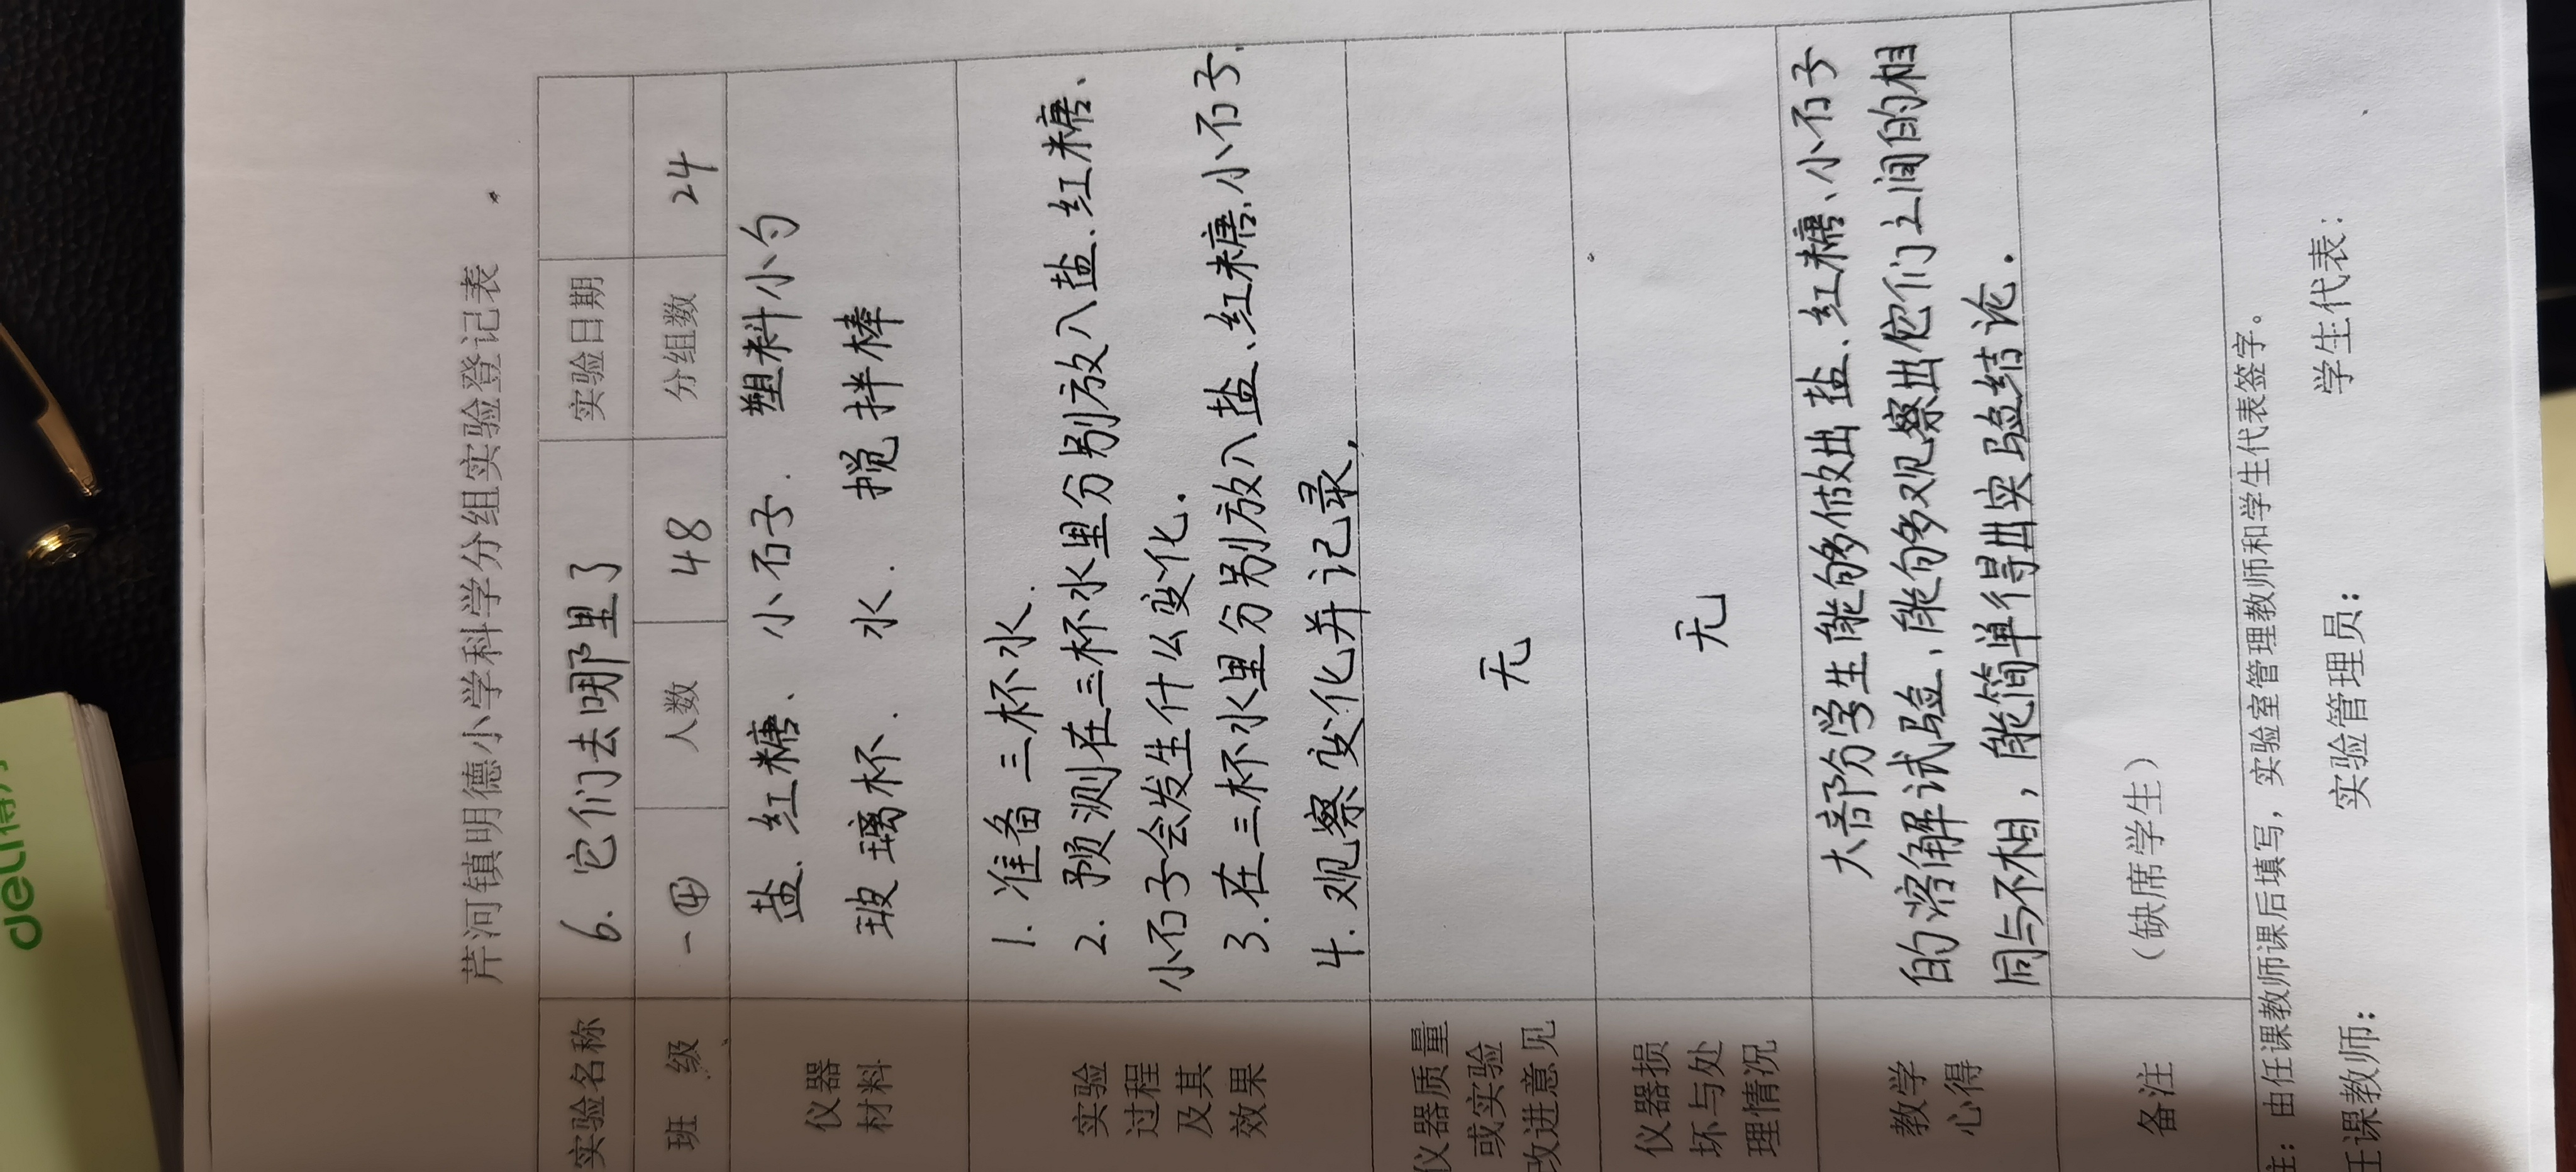 芹河镇明德小学科学分组实验登记表
实验名称 6. 它们去哪里了 实验日期
班 级 一④ 人数 48 分组数 24
仪器
材料
盐、红糖、小石子. 塑料小勺
玻璃杯. 水. 搅拌棒
实验
过程
及其
效果
1. 准备三杯水.
2. 预测在三杯水里分别放入盐、红糖、
小石子会发生什么变化.
3. 在三杯水里分别放入盐、红糖、小石子.
4. 观察变化并记录,
仪器质量
或实验
改进意见
无
仪器损
坏与处
理情况
无
教学
心得
大部分学生能够做出盐、红糖、小石子
的溶解试验,能够观察出它们之间的相
同与不相,能简单得出实验结论.
备注
（缺席学生）
注：由任课教师课后填写，实验室管理教师和学生代表签字。
任课教师： 实验管理员： 学生代表：
deli